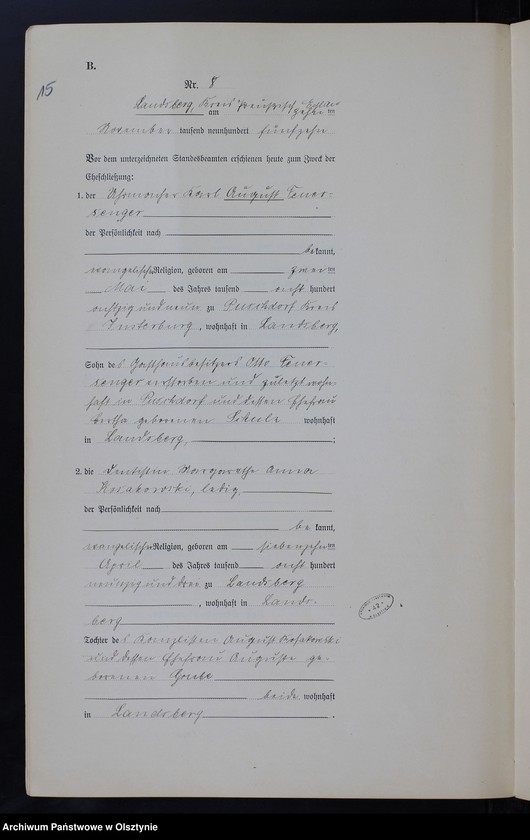 B.
15
Nr. 8
Landsberg, Kreis Preußisch Eylau
am zehnten
November tausend neunhundert fünfzehn
Vor dem unterzeichneten Standesbeamten erschienen heute zum Zweck der
Eheschließung:
1. der Uhrmacher Karl August Feuer-
senger
der Persönlichkeit nach
bekannt,
evangelischer Religion, geboren am zweiten
Mai des Jahres tausend acht hundert
achtzig und neun zu Kreis
Insterburg, wohnhaft in Landsberg,
Sohn des Gasthausbesitzers Otto Feuer-
senger verstorben und zuletzt wohn-
haft in und dessen Ehefrau
Bertha geborenen wohnhaft
in Landsberg, ;
2. die Margarethe Anna
ledig,
der Persönlichkeit nach
be kannt,
evangelischer Religion, geboren am siebenzehnten
April des Jahres tausend acht hundert
neunzig und drei zu Landsberg
, wohnhaft in Lands-
berg
Tochter des Kanzlisten August
und dessen Ehefrau Auguste ge-
borenen
beide wohnhaft
in Landsberg .
42
Archiwum Państwowe w Olsztynie